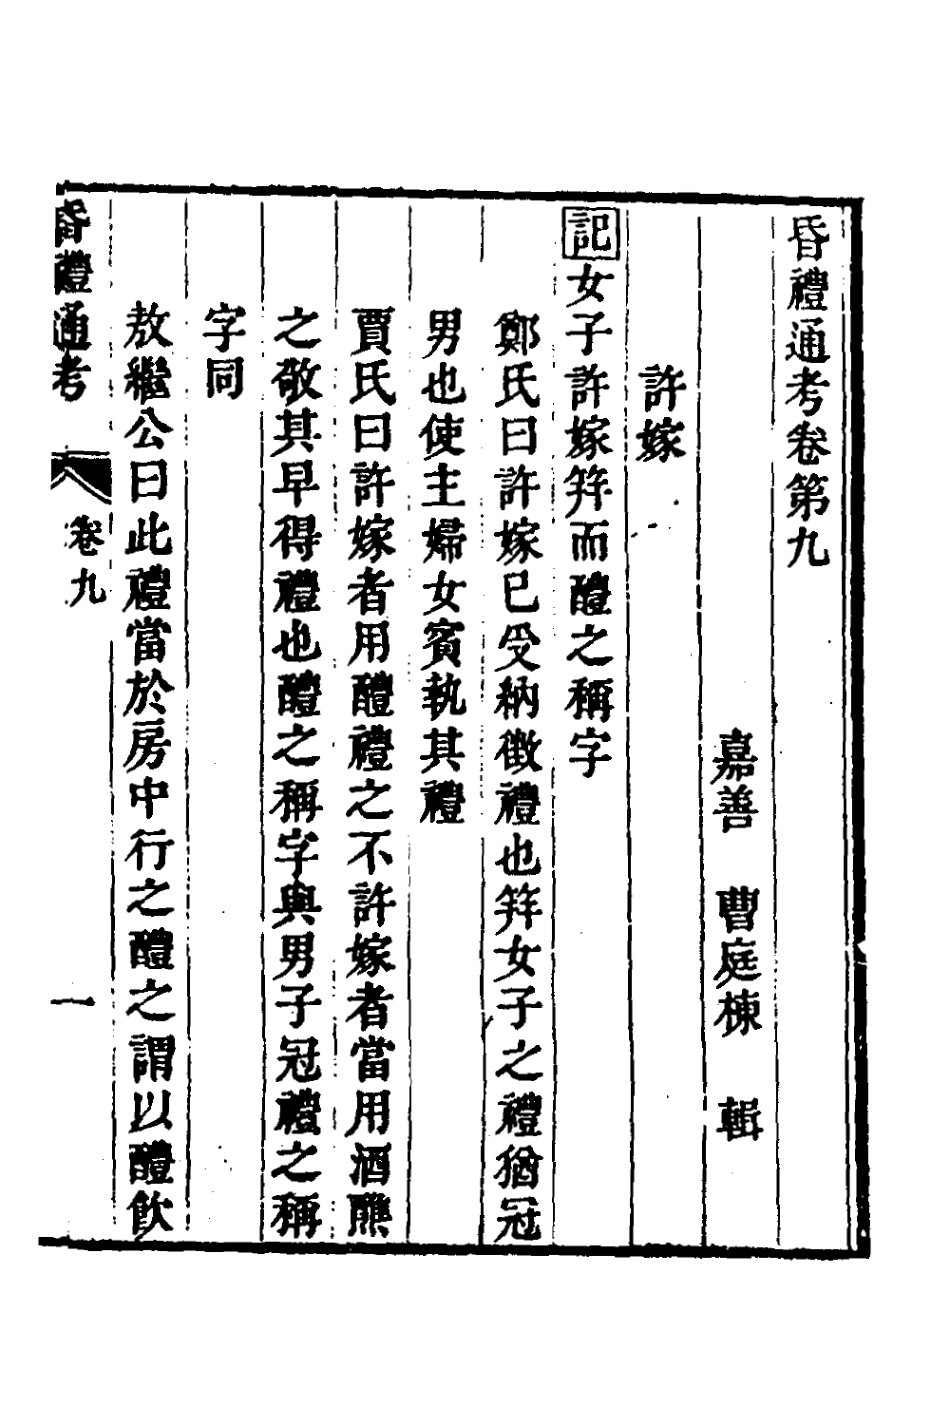 昏禮通考卷第九
嘉善 曹庭棟 輯
許嫁
記女子許嫁笄而醴之稱字
鄭氏曰許嫁已受納徵禮也笄女子之禮猶冠
男也使主婦女賓執其禮
賈氏曰許嫁者用醴禮之不許嫁者當用酒醮
之敬其早得禮也醴之稱字與男子冠禮之稱
字同
敖繼公曰此禮當於房中行之醴之謂以醴飲
昏禮通考 卷九 一